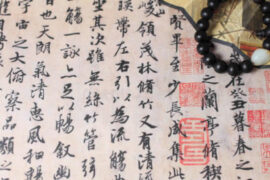 在癸丑暮春之
之蘭亭脩稧
畢至少長咸集此
峻領茂林脩竹又有清
帶左右引以為流觴
坐其次雖無絲竹管弦
觴一詠亦足以暢敘幽
也天朗氣清惠風和暢
宙之大俯察品類之